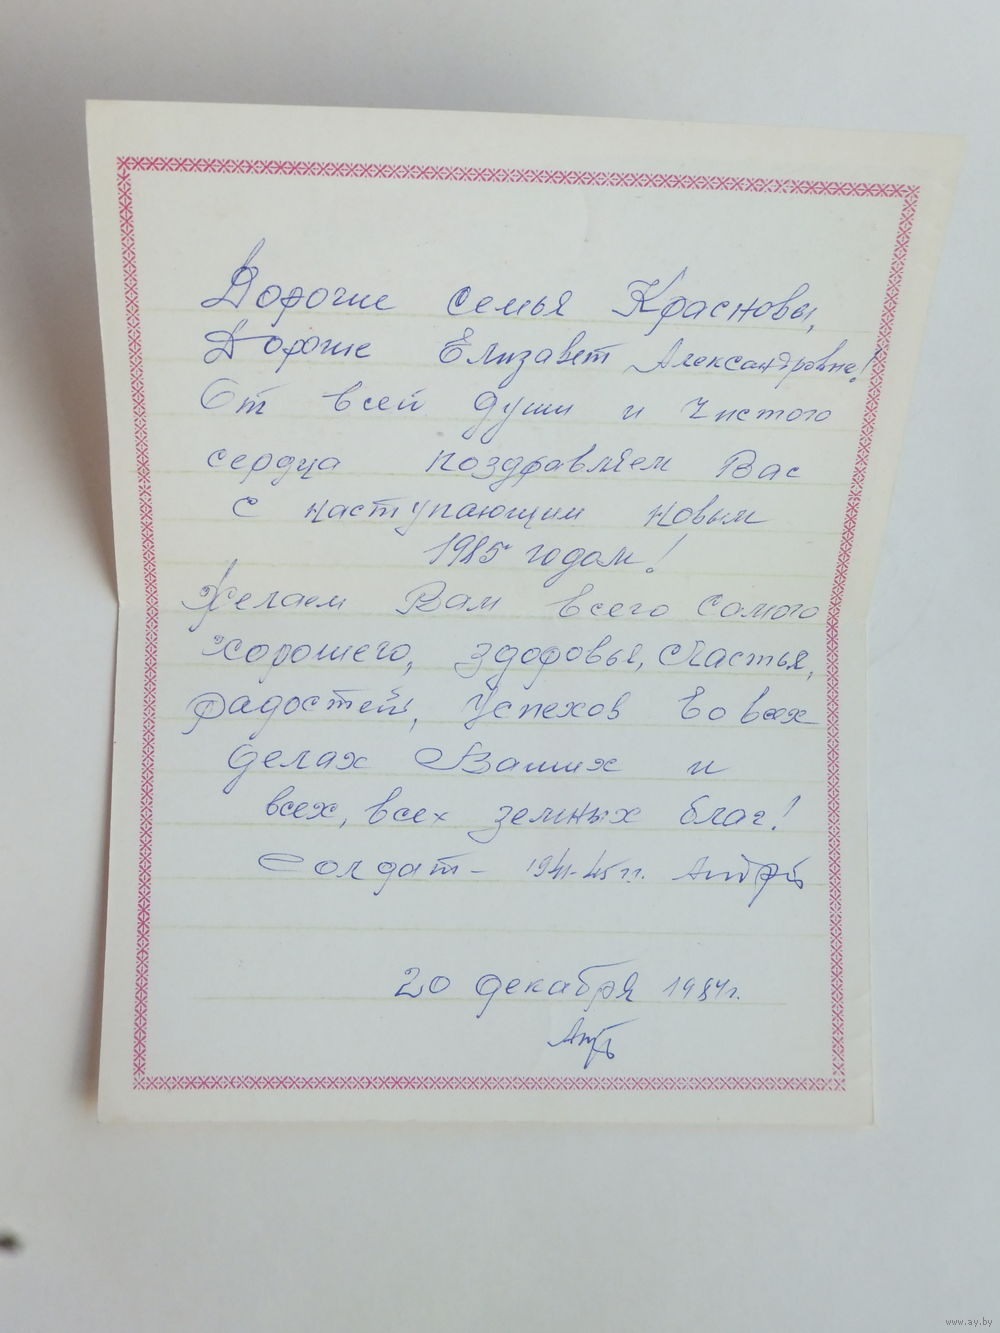 Дорогие семья Красновы,
Дорогие Елизавет Александровне!
От всей души и чистого
сердца поздравляем Вас
с наступающим новым
1985 годом!
Желаем Вам всего самого
хорошего, здоровья, счастья,
радостей, успехов во всех
делах Ваших и
всех, всех земных благ!
Солдат - 1941-45 гг.
20 декабря 1984 г.
www.ay.by